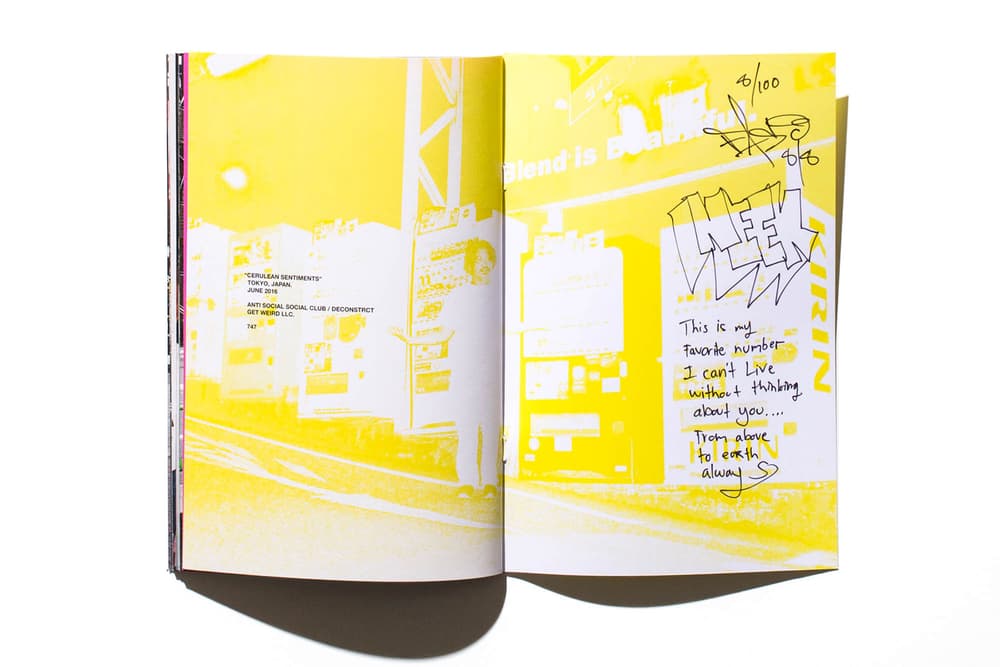 "CERULEAN SENTIMENTS"
TOKYO, JAPAN.
JUNE 2016
ANTI SOCIAL SOCIAL CLUB / DECONSTRCT
GET WEIRD LLC.
747
8/100
88
Blend is Beautiful.
WEEK
KIRIN
This is my
Favorite number
I can't Live
without thinking
about you....
From above
to earth
always
KIRIN